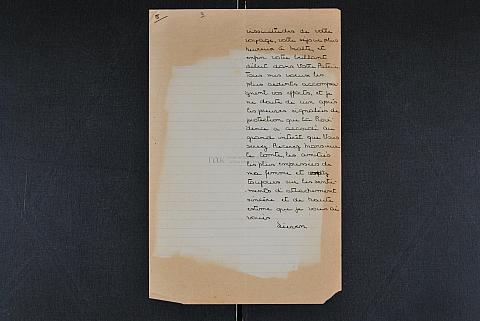 5 3
vissicitudes de votre
voyage, votre séjour plus
heureux à Malte, et
enfin votre brillant
début dans Votre Patrie.
Tous mes voeux les
plus ardents accompa-
gnent vos efforts, et je
ne doute de rien après
les preuves signalées de
protection que la Provi-
dence a accordé au
grand intérêt que Vous
servez. Recevez monsieur
le Comte, les amitiés
les plus empressées de
ma femme et
toujours sur les senti-
ments d'attachement
sincère et de haute
estime que je vous ai
voués.